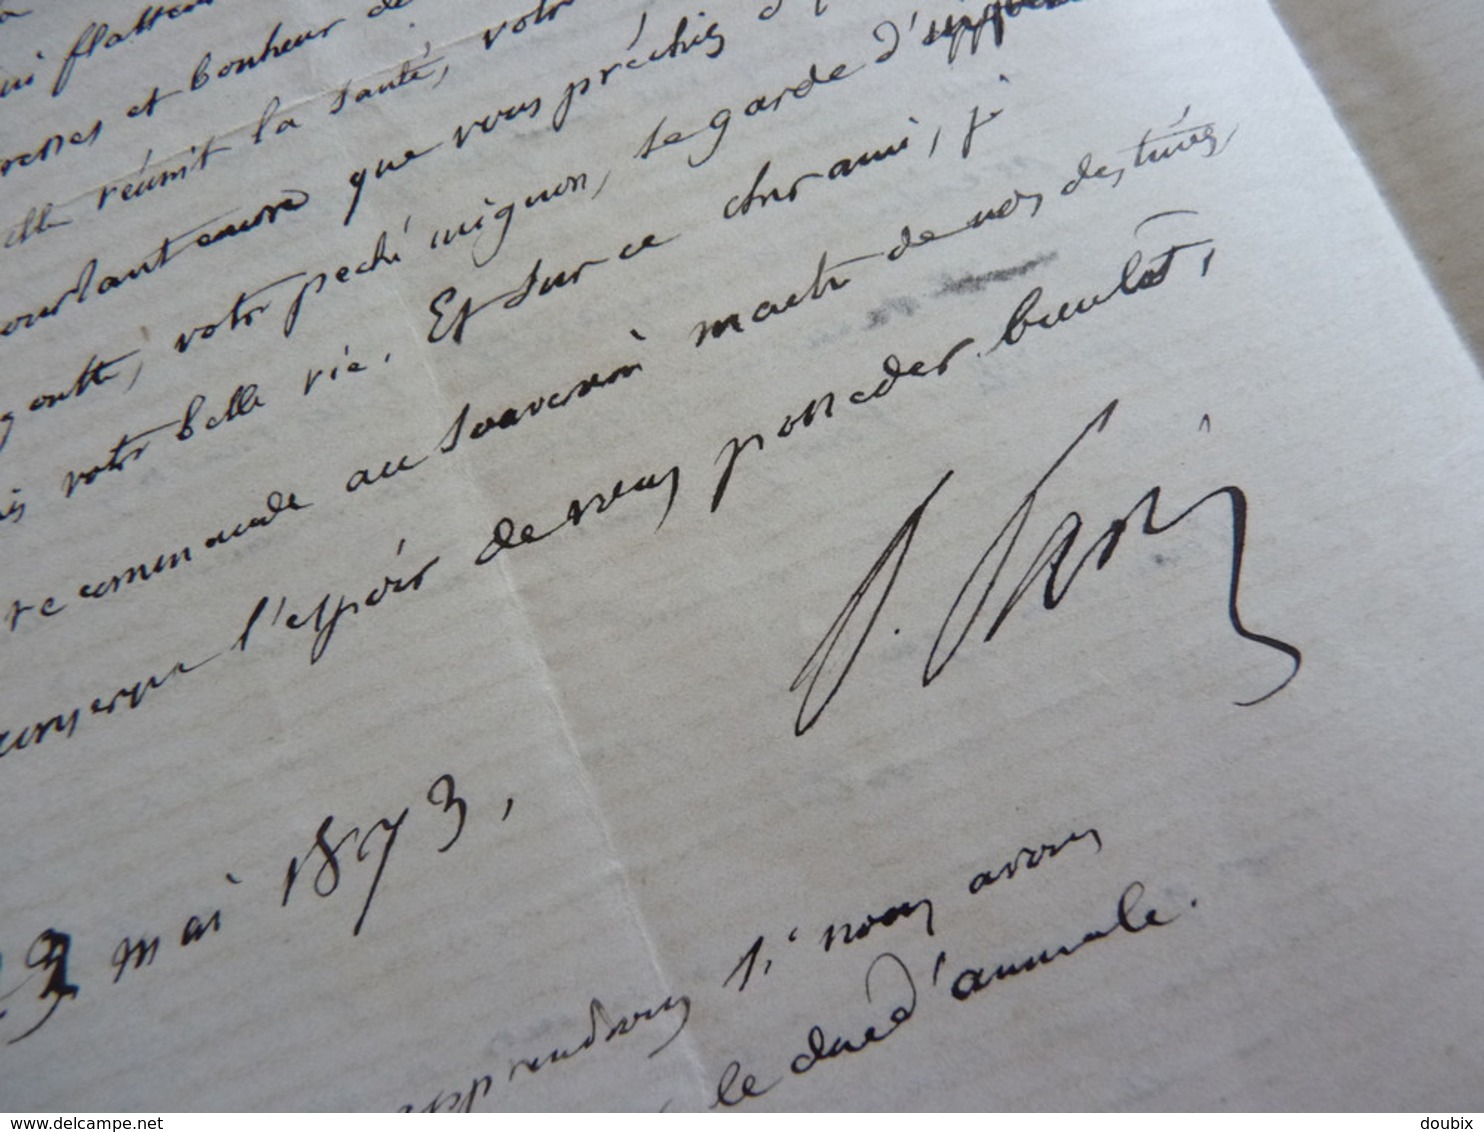 flatteur
et bonheur de
elle réunit la santé, votre
pourtant encore que vous préchiez
goutte, votre peché mignon, se garde d'
votre belle vie. Et sur ce cher ami, je
recommande au souverain maître de nos destinées,
conserve l'espoir de vous posseder bientôt,
P. Paris
23 mai 1873,
apprendrons si nous avons
le duc d'aumale.
delcampe.net
doubix